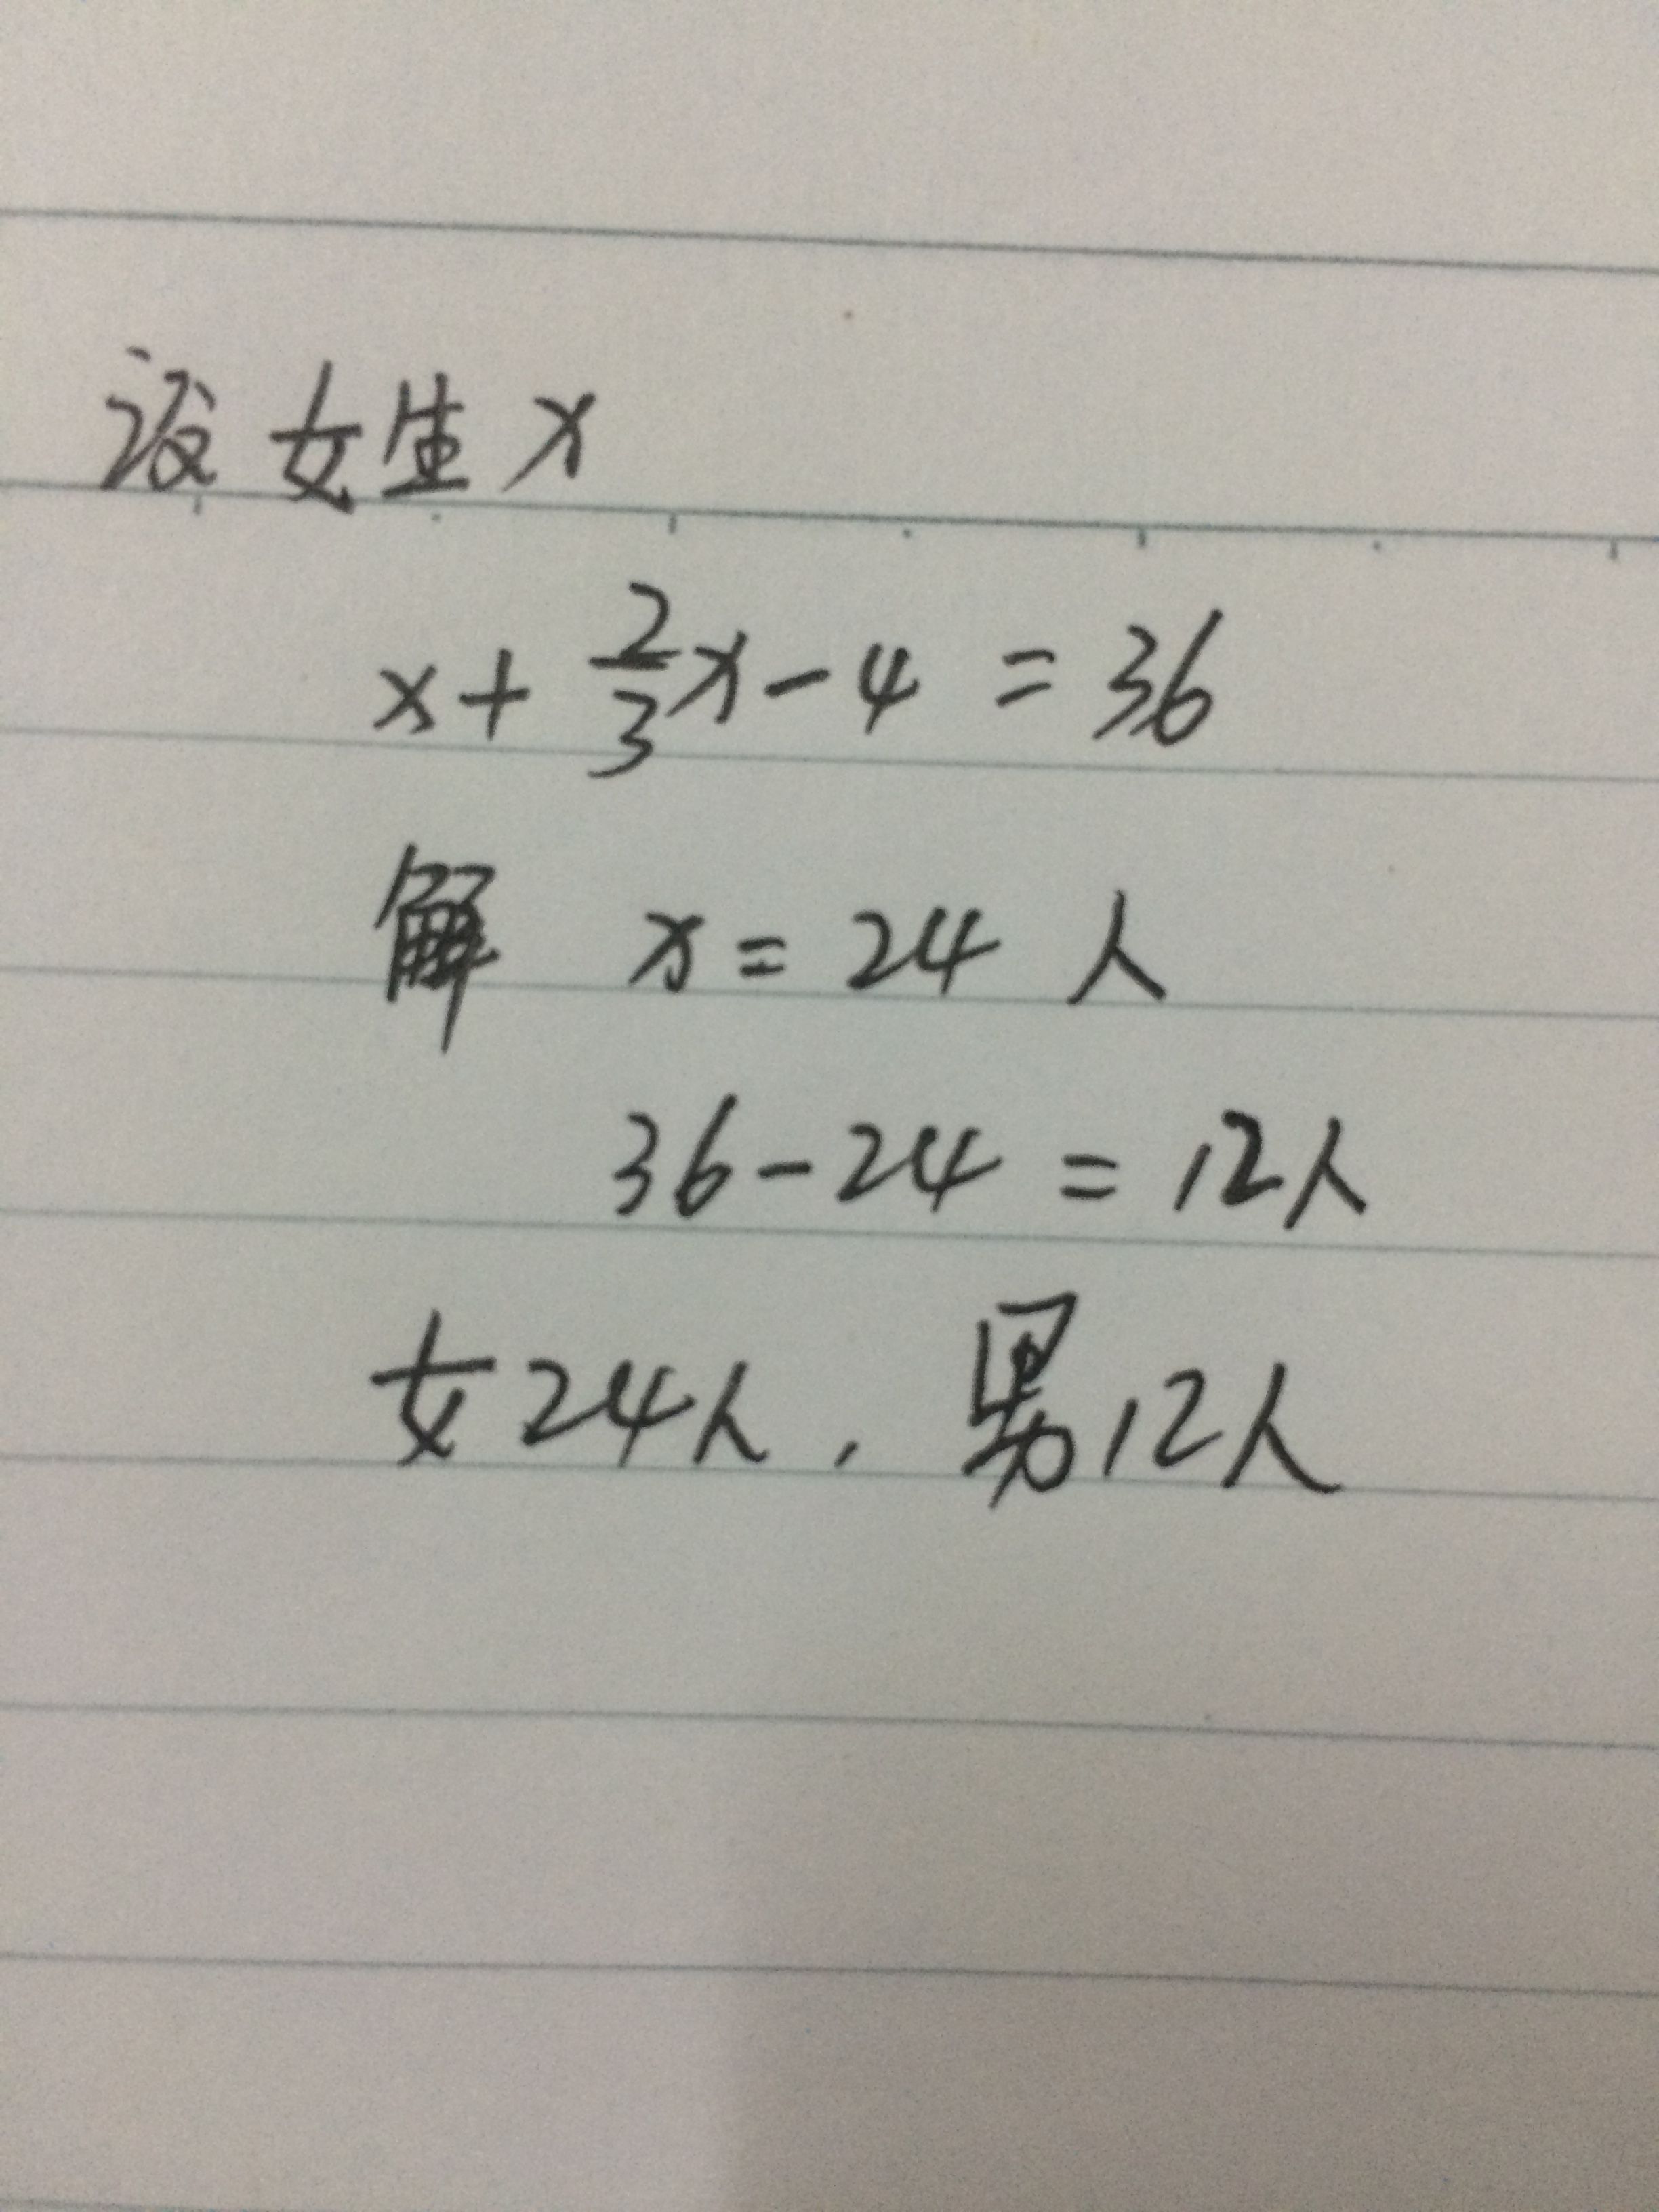 设女生x
x+2/3x-4=36
解 x=24人
36-24=12人
女24人,男12人